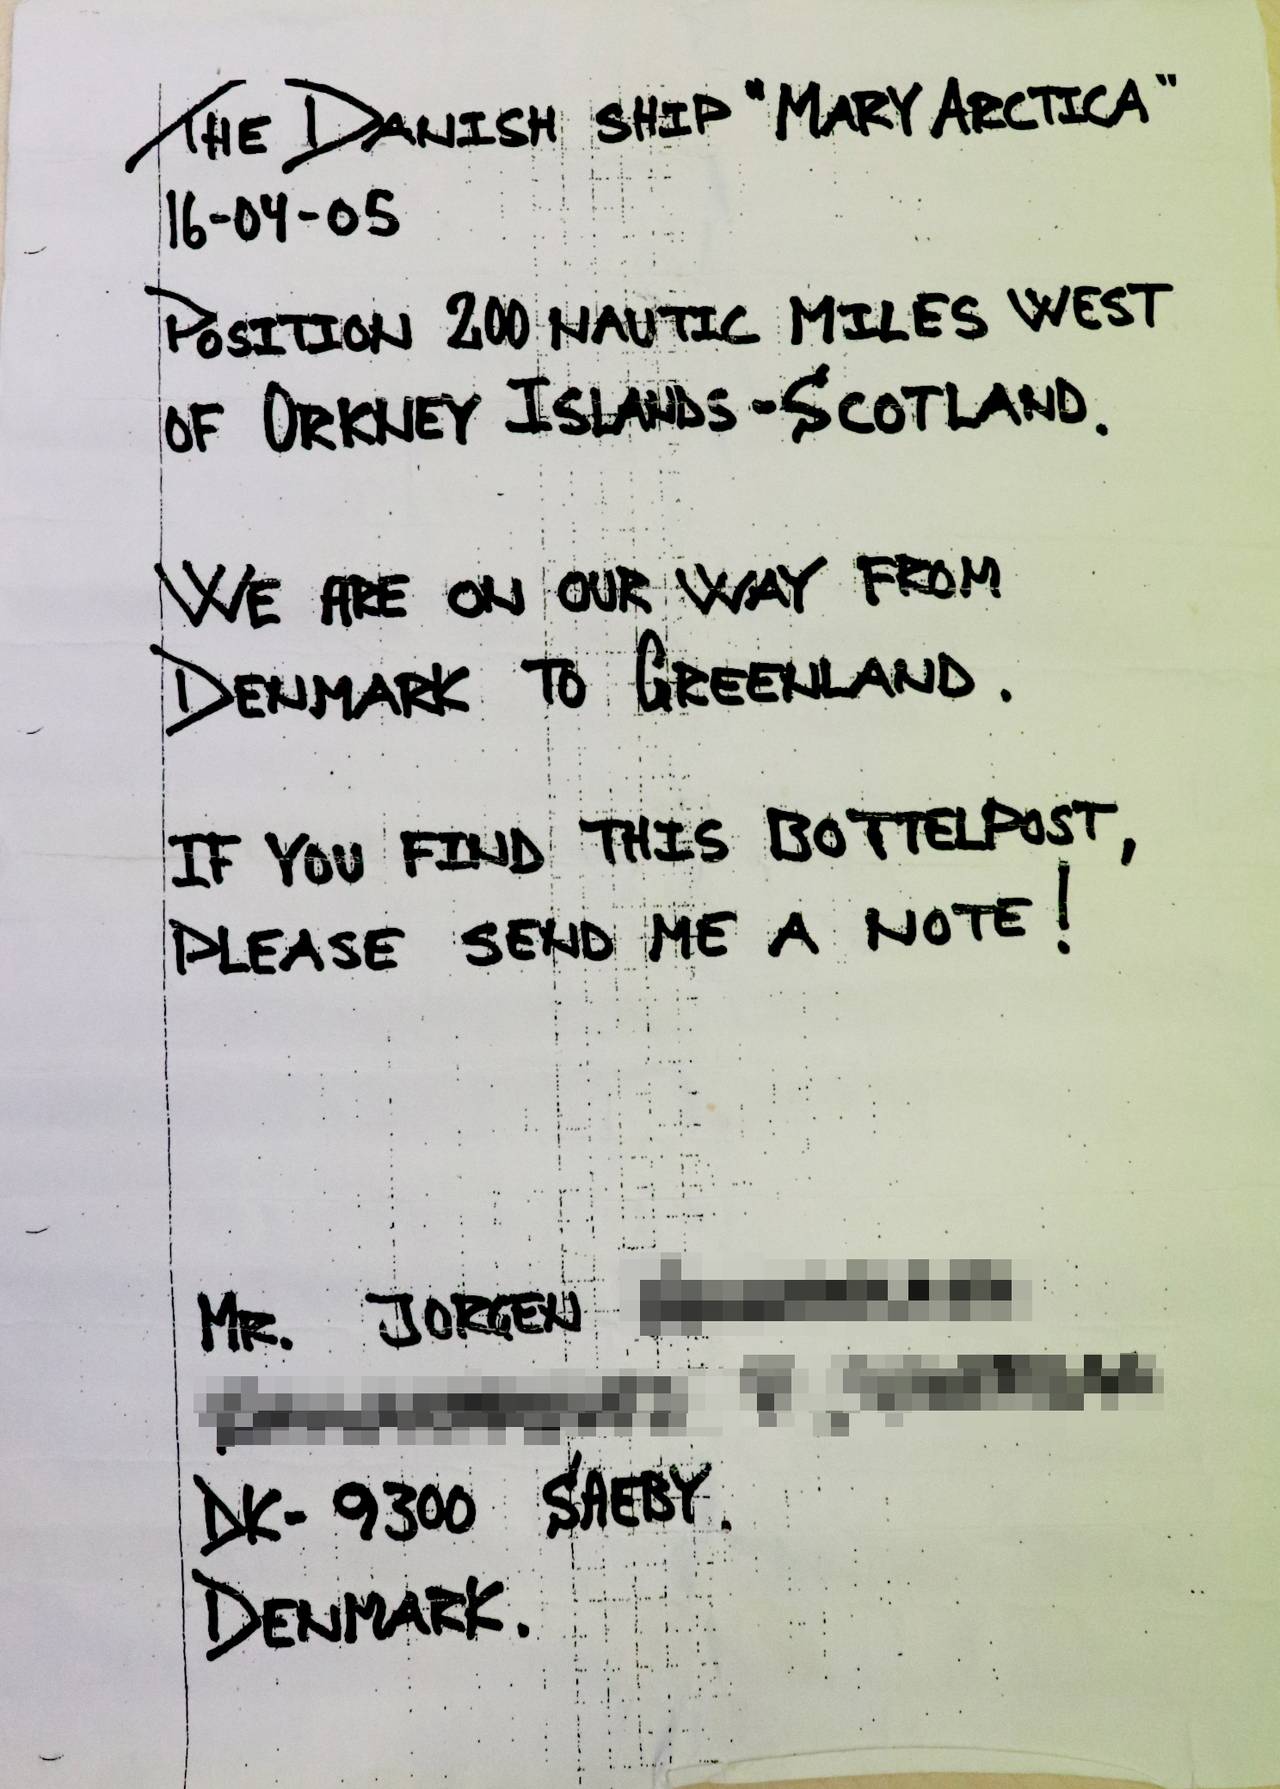 THE DANISH SHIP "MARY ARCTICA"
16-04-05
POSITION 200 NAUTIC MILES WEST
OF ORKNEY ISLANDS - SCOTLAND.
WE ARE ON OUR WAY FROM
DENMARK TO GREENLAND.
IF YOU FIND THIS BOTTELPOST,
PLEASE SEND ME A NOTE!
MR. JORGEN
DK- 9300 SAEBY.
DENMARK.